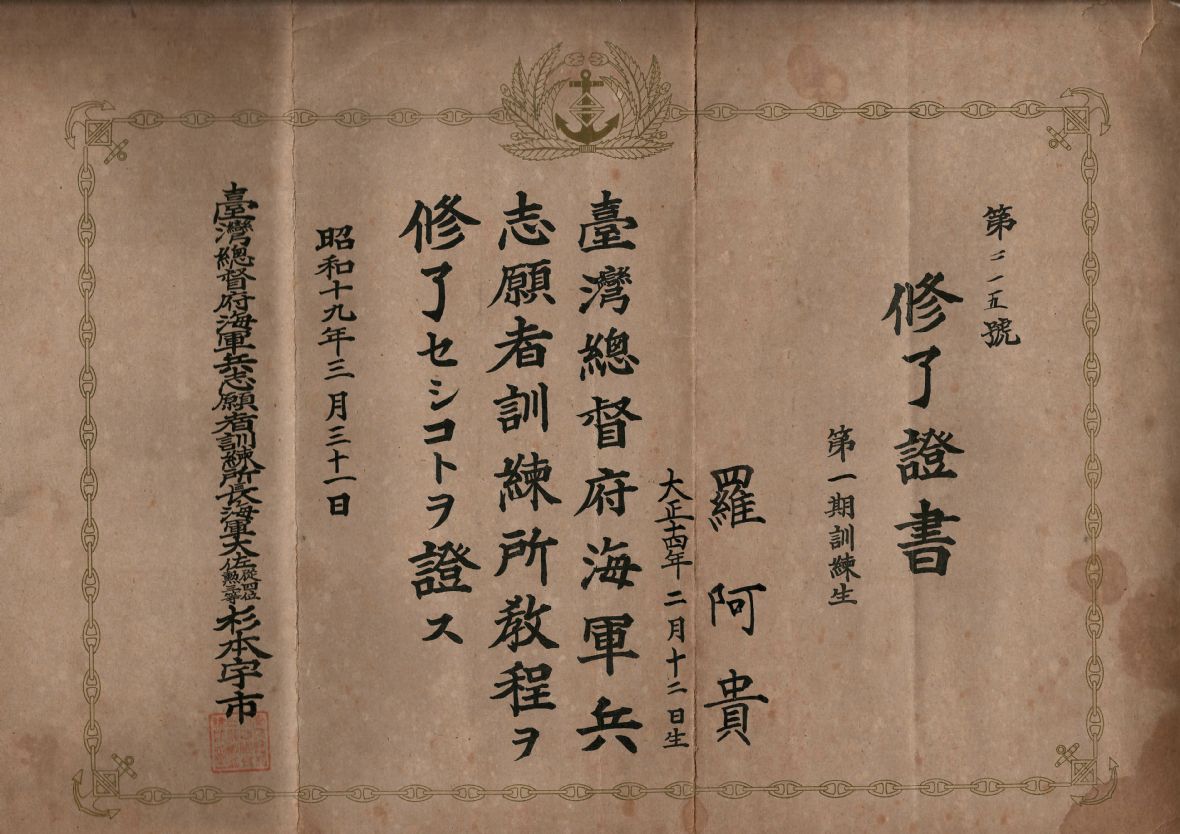 第二一五號
修了證書
第一期訓練生
羅阿貴
大正十四年二月十二日生
臺灣總督府海軍兵
志願者訓練所教程ヲ
修了セシコトヲ證ス
昭和十九年三月三十一日
臺灣總督府海軍兵志願者訓練所長海軍大佐從四位勲三等杉本宇市